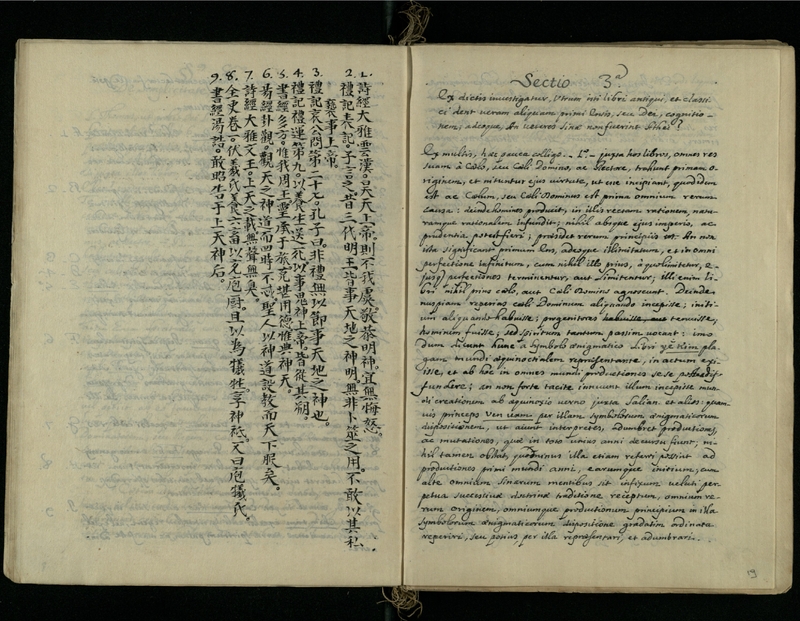 1. 詩經大雅雲漢。昊天上帝。則不我虞。敬恭明神。宜無悔怒。
2. 禮記表記。子言之。昔三代明王。皆事天地之神明。無非卜筮之用。不敢以其私
褻事上帝。
3. 禮記哀公問第二十七。孔子曰。非禮無以節事天地之神也。
4. 禮記禮運第九。以養生送死。以事鬼神上帝。皆從其朔。
5. 書經多方。惟我周王。靈承于旅。克堪用德。惟典神天。
6. 易經卦觀。觀天之神道。而四時不忒。聖人以神道設教。而天下服矣。
7. 詩經大雅文王。上天之載。無聲無臭。
8. 全史卷一。伏羲氏養六畜以充庖厨。且以為犧牲。享神祇。又曰庖犧氏。
9. 書經湯誥。敢昭告于上天神后。
Sectio 3.ª
Ex dictis investigatur, Utrum isti libri antiqui, et classi-
ci dent veram aliquam primi Entis, seu Dei, cognitio-
nem, adeoque, An veteres Sinæ non fuerint Athei?
Ex multis, hæc pauca colligo. 1.º juxta hos libros, omnes res
suam à Cœlo, seu Cœli Domino, ac Rectore, trahunt primam o-
riginem, et nituntur ejus virtute, ut esse incipiant, quod idem
est ac Cœlum, seu Cœli Dominus est prima omnium rerum
causa: deinde homines producit, in illis rectam rationem, natu-
ramque rationalem infundit; nihil absque ejus imperio, ac
prudentia potest fieri; præsidet rerum principiis &c. An non
ista significant primum Ens, adeoque illimitatum, et in omni
perfectione infinitum, cum nihil illo prius, à quo limitetur, e-
jusque perfectiones terminentur, aut limitentur; illi enim li-
bri nihil prius cœlo, aut Cœli Domino agnoscunt. Deinde
nuspiam reperias cœli Dominum aliquando incepisse; initi-
um aliquando habuisse; progenitores tenuisse,
hominem fuisse; sed spiritum tantum passim vocant: imo
dum dicunt hunc à symbolo ænigmatico Libri yĕ kim pla-
gam mundi æquinoctialem repræsentante, in actum exi-
isse, et ab hoc in omnes mundi productiones se se
fundere; en non forte tacite innuunt illum incepisse mun-
di creationem ab æquinoxio verno juxta Salian. et alios: quam
vis princeps Ven vam per illam symbolorum ænigmaticorum
dispositionem, ut aiunt interpretes, adumbret productiones,
ac mutationes, quæ in toto unius anni decursu fiunt, ni-
hil tamen obstat, quominus illa etiam referri possint ad
productiones primi mundi anni, earumque initium; cum
alte omnium Sinarum mentibus sit infixum veluti per
petua successivæ doctrinæ traditione receptum, omnium re-
rum originem, omniumque productionum principium in illa
symbolorum ænigmaticorum dispositione gradatim ordinata
reperiri, seu potius per illa repræsentari, et adumbrari.
19